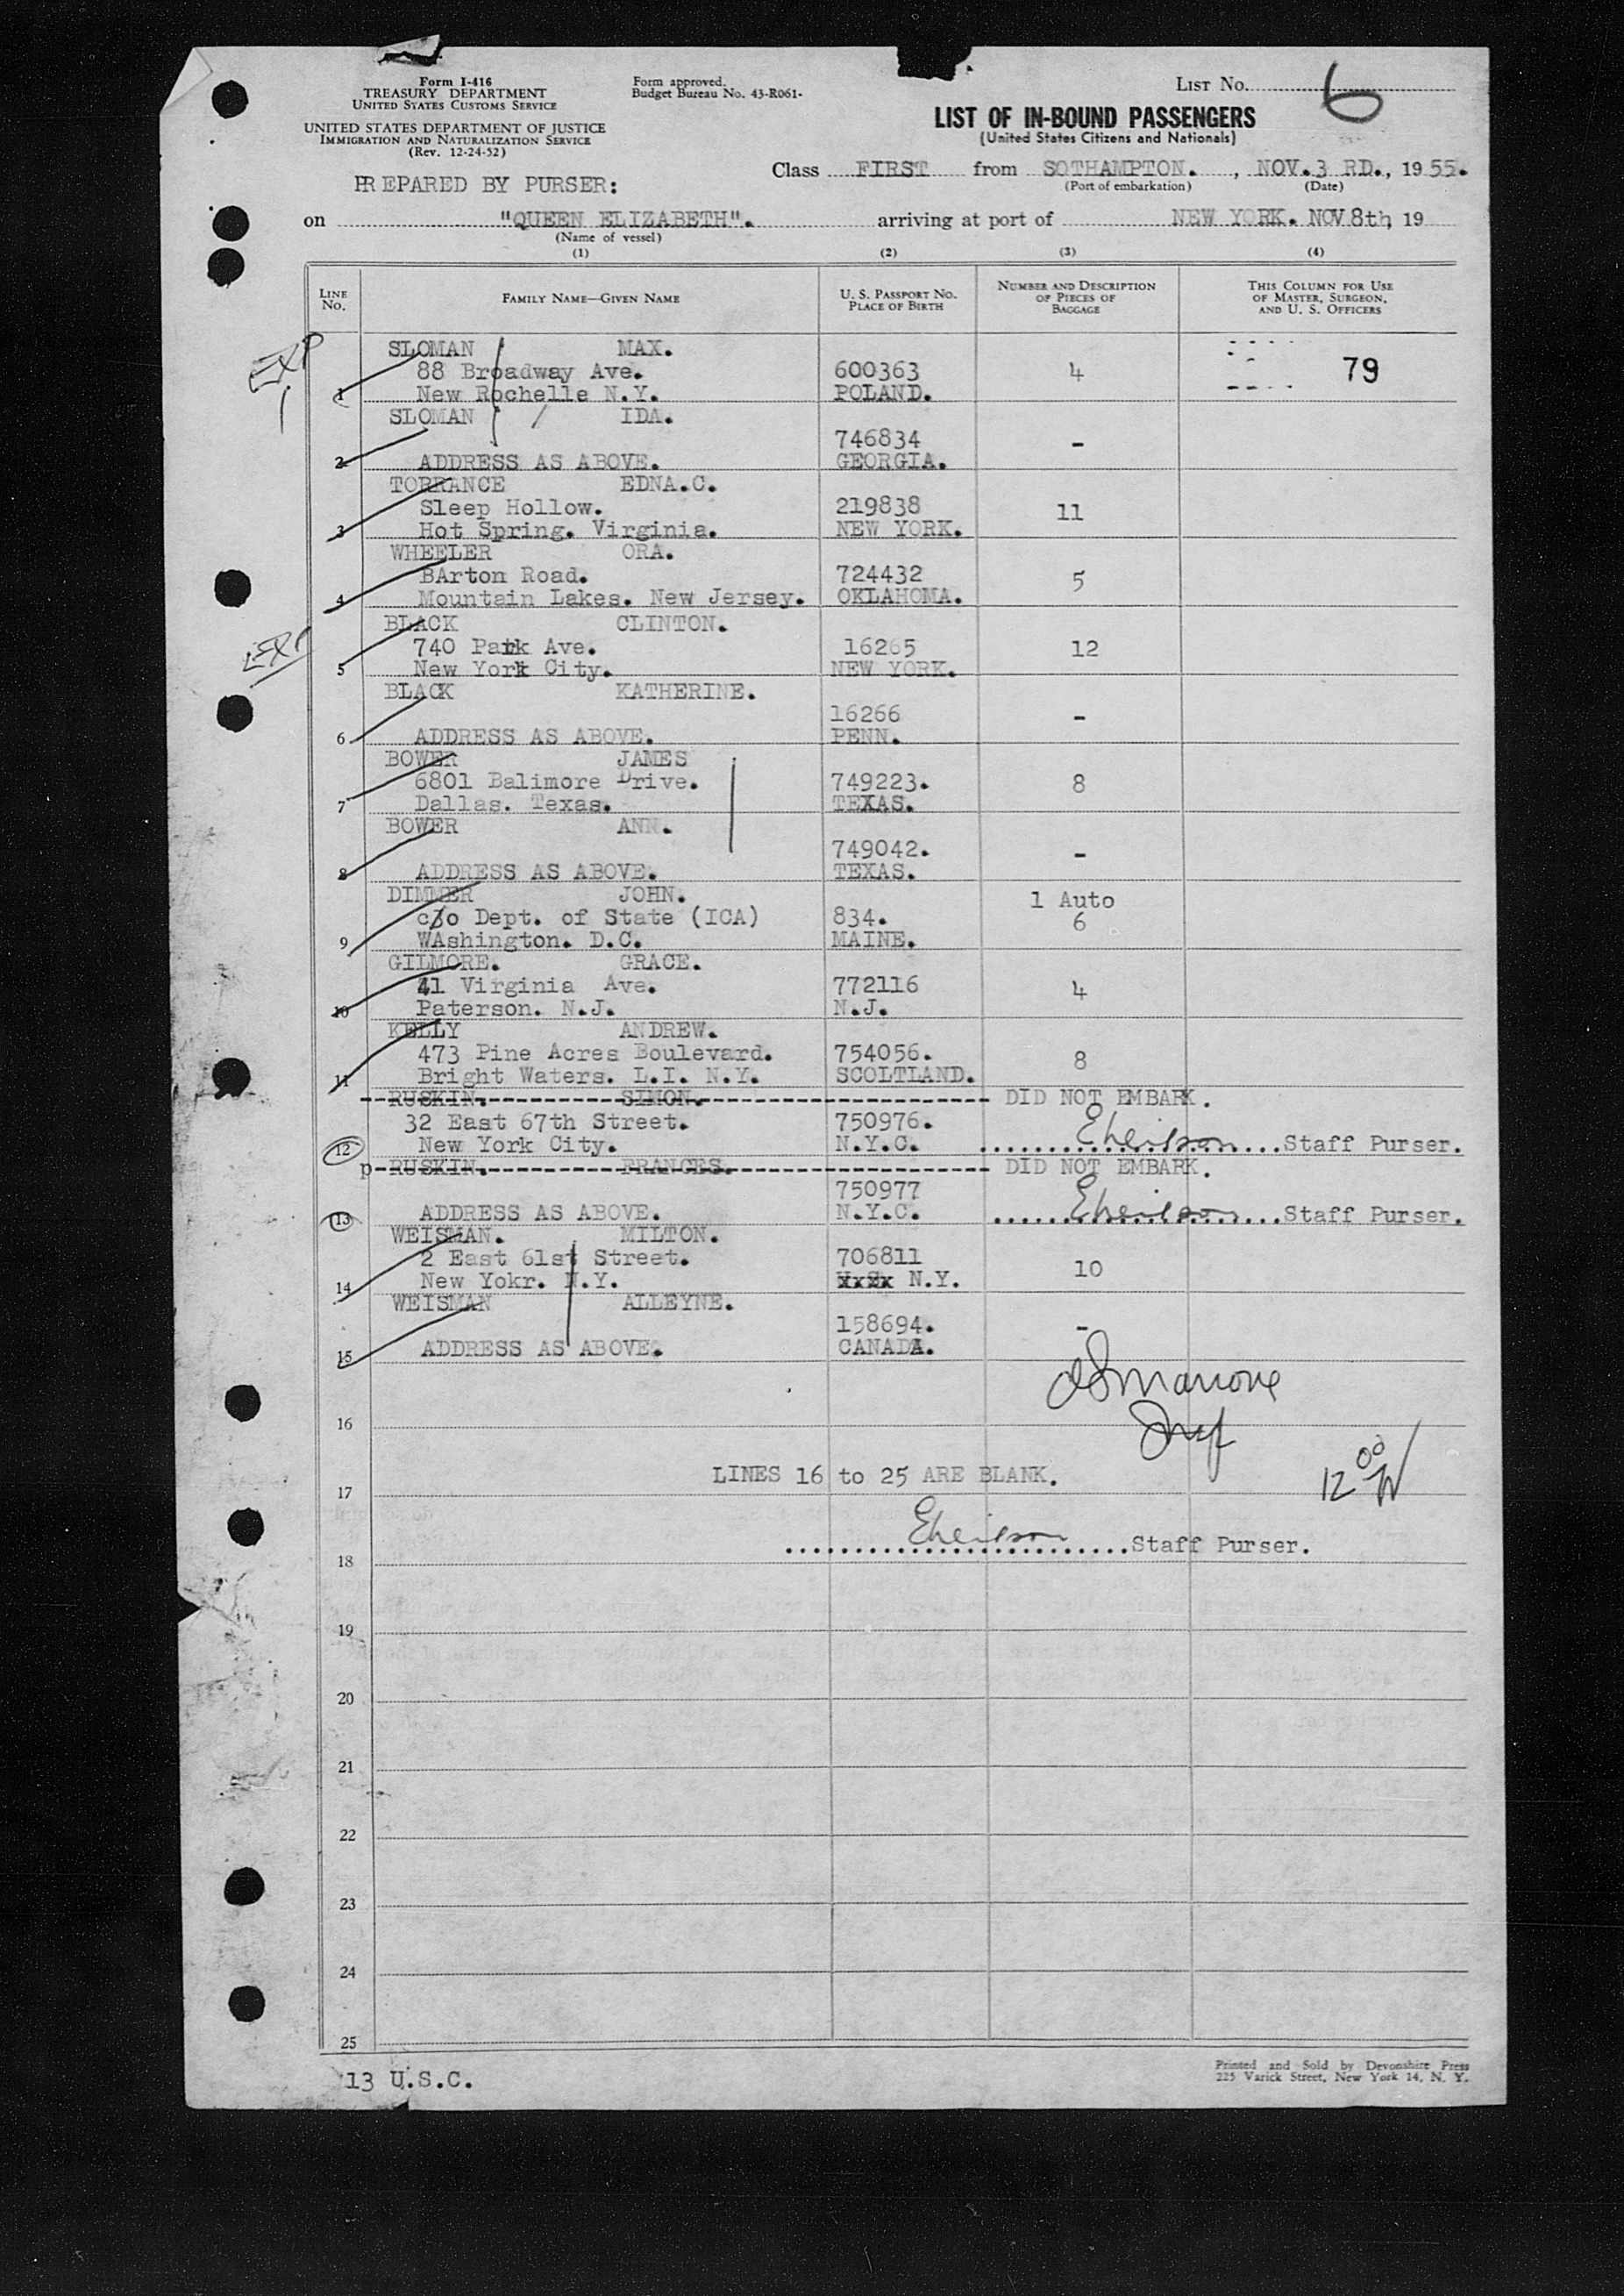 Form I-416
TREASURY DEPARTMENT
UNITED STATES CUSTOMS SERVICE
UNITED STATES DEPARTMENT OF JUSTICE
IMMIGRATION AND NATURALIZATION SERVICE
(Rev. 12-24-52)
Form approved.
Budget Bureau No. 43-R061-
LIST No. 6
LIST OF IN-BOUND PASSENGERS
(United States Citizens and Nationals)
Class FIRST from SOTHAMPTON. , NOV.3 RD., 1955.
(Port of embarkation) (Date)
PREPARED BY PURSER:
on "QUEEN ELIZABETH". arriving at port of NEW YORK. NOV.8th, 19
(Name of vessel)
(1) (2) (3) (4)
LINE No. FAMILY NAME—GIVEN NAME U. S. PASSPORT NO. PLACE OF BIRTH NUMBER AND DESCRIPTION OF PIECES OF BAGGAGE THIS COLUMN FOR USE OF MASTER, SURGEON, AND U. S. OFFICERS
EXP
SLOMAN MAX.
88 Broadway Ave. 600363 4 79
1 New Rochelle N.Y. POLAND.
SLOMAN IDA.
746834 -
2 ADDRESS AS ABOVE. GEORGIA.
TORRANCE EDNA.C.
Sleep Hollow. 219838 11
3 Hot Spring. Virginia. NEW YORK.
WHEELER ORA.
BArton Road. 724432 5
4 Mountain Lakes. New Jersey. OKLAHOMA.
BLACK CLINTON.
EXP
740 Park Ave. 16265 12
5 New York City. NEW YORK.
BLACK KATHERINE.
16266 -
6 ADDRESS AS ABOVE. PENN.
BOWER JAMES
6801 Balimore Drive. 749223. 8
7 Dallas. Texas. TEXAS.
BOWER ANN.
749042. -
8 ADDRESS AS ABOVE. TEXAS.
DIMMER JOHN. 1 Auto
c/o Dept. of State (ICA) 834. 6
9 WAshington. D.C. MAINE.
GILMORE. GRACE.
41 Virginia Ave. 772116 4
10 Paterson. N.J. N.J.
KELLY ANDREW.
473 Pine Acres Boulevard. 754056. 8
11 Bright Waters. L.I. N.Y. SCOLTLAND.
--RUSKIN.-----------SIMON.------------------------ DID NOT EMBARK.
32 East 67th Street. 750976.
12 New York City. N.Y.C. Staff Purser.
p-RUSKIN.-----------FRANCES.---------------------- DID NOT EMBARK.
750977
13 ADDRESS AS ABOVE. N.Y.C. Staff Purser.
WEISMAN. MILTON.
2 East 61st Street. 706811 10
14 New Yokr. N.Y. N.Y.
WEISMAN ALLEYNE.
158694. -
15 ADDRESS AS ABOVE. CANADA.
16
LINES 16 to 25 ARE BLANK.
12 00
17
Staff Purser.
18
19
20
21
22
23
24
25
13 U.S.C.
Printed and Sold by Devonshire Press
225 Varick Street, New York 14, N. Y.